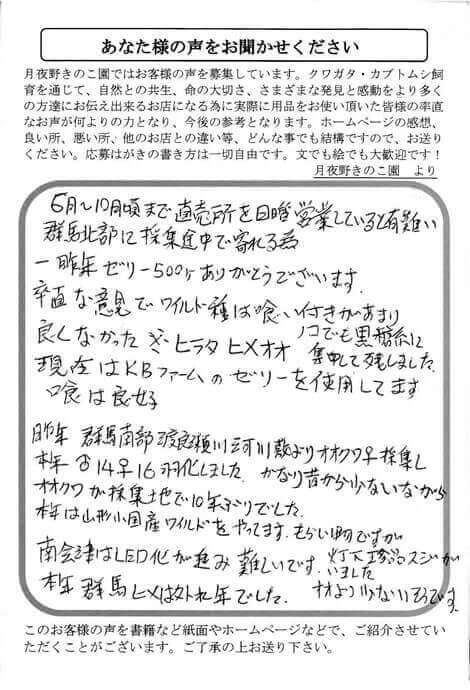 あなた様の声をお聞かせください
月夜野きのこ園ではお客様の声を募集しています。クワガタ・カブトムシ飼
育を通じて、自然との共生、命の大切さ、さまざまな発見と感動をより多く
の方達にお伝え出来るお店になる為に実際に用品をお使い頂いた皆様の率直
なお声が何よりの力となり、今後の参考となります。ホームページの感想、
良い所、悪い所、他のお店との違い等、どんな事でも結構ですので、お送り
ください。応募はがきの書き方は一切自由です。文でも絵でも大歓迎です！
月夜野きのこ園　より
6月〜10月頃まで直売所を日曜営業していると有難い
群馬北部に採集途中で寄れる為
一昨年ゼリー500ヶありがとうございます.
卒直な意見でワイルド種は喰い付きがあまり
良くなかった ヒラタ ヒメオオ ノコでも黒糖系に
集中して残しました.
現在はKBファームのゼリーを使用してます
喰は良好
昨年 群馬南部渡良瀬川河川敷よりオオクワ♀採集し
本年 ♂14♀16羽化しました. かなり昔から少ないながら
オオクワが採集土地で10年ぶりでした.
本年は山形小国産ワイルドをやってます. もらい物ですが
南会津はLED化が進み 難しいです. 灯火 スジが
いました
本年 群馬ヒメは外れ年でした. オオより少ないそうです.
このお客様の声を書籍など紙面やホームページなどで、ご紹介させてい
ただくことがございます。ご了承の上お送り下さい。